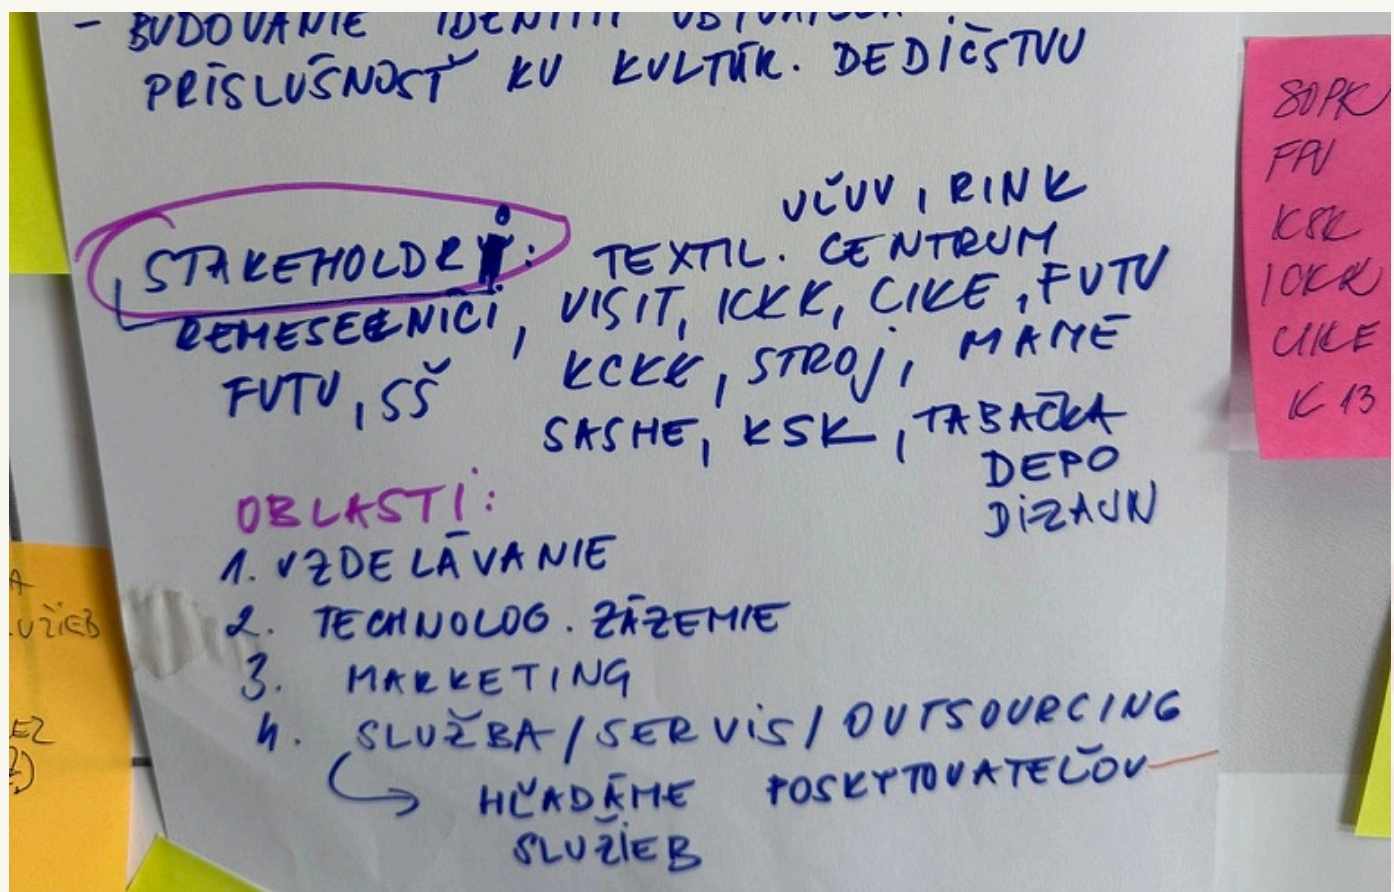 - BUDOVANIE IDENTITY
PRÍSLUŠNOSŤ KU KULTÚR. DEDIČSTVU
STAKEHOLDRI:
REMESELNÍCI,
FUTU, SŠ
ÚĽUV, RINK
TEXTIL. CENTRUM
VISIT, ICKK, CIKE, FUTU
KCKK, STROJ, MAME
SASHE, KSK, TABAČKA
DEPO
DIZAJN
OBLASTI:
1. VZDELÁVANIE
2. TECHNOLOG. ZÁZEMIE
3. MARKETING
4. SLUŽBA/SERVIS/OUTSOURCING
HĽADÁME POSKYTOVATEĽOV
SLUŽIEB
SOPK
FPU
KSK
ICKK
CIKE
K 13